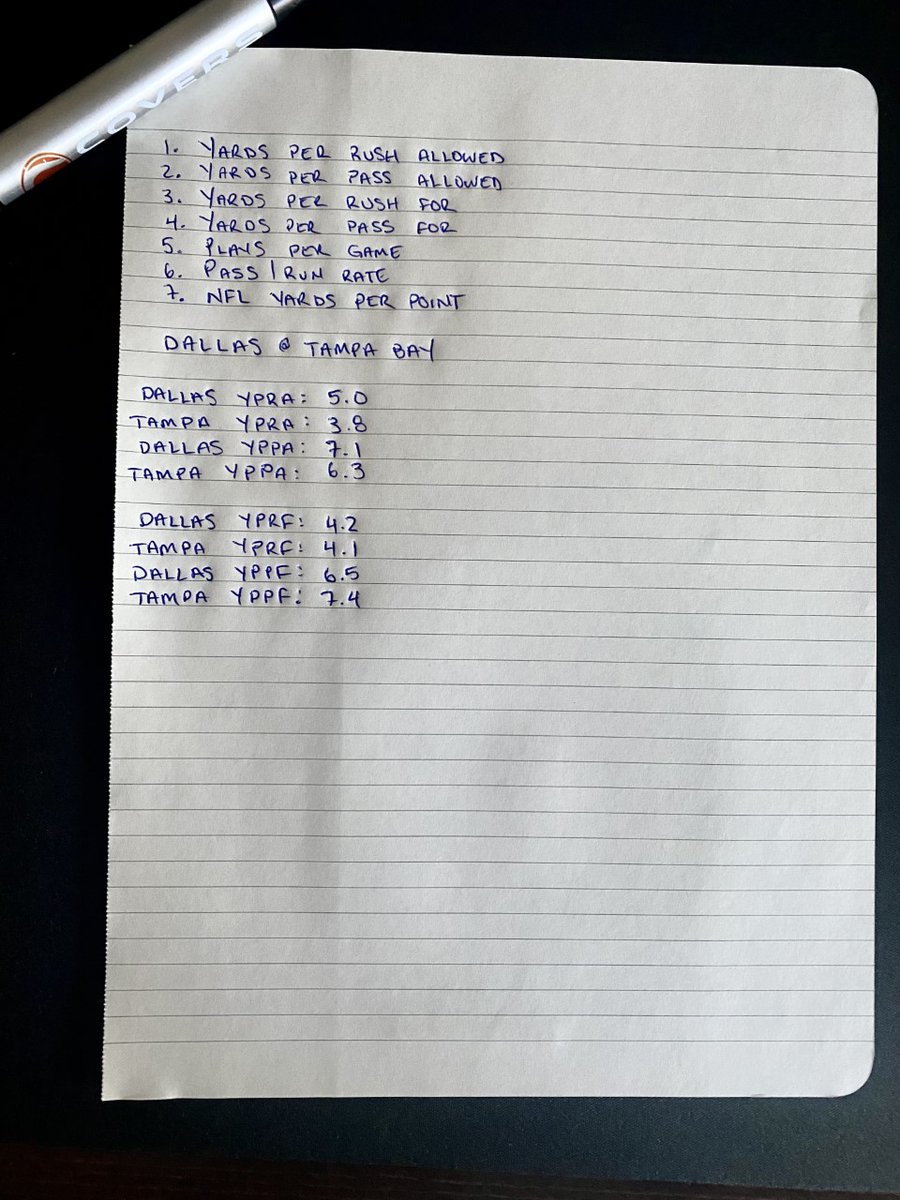 COVERS
1. YARDS PER RUSH ALLOWED
2. YARDS PER PASS ALLOWED
3. YARDS PER RUSH FOR
4. YARDS PER PASS FOR
5. PLAYS PER GAME
6. PASS | RUN RATE
7. NFL YARDS PER POINT
DALLAS @ TAMPA BAY
DALLAS YPRA: 5.0
TAMPA YPRA: 3.8
DALLAS YPPA: 7.1
TAMPA YPPA: 6.3
DALLAS YPRF: 4.2
TAMPA YPRF: 4.1
DALLAS YPPF: 6.5
TAMPA YPPF: 7.4